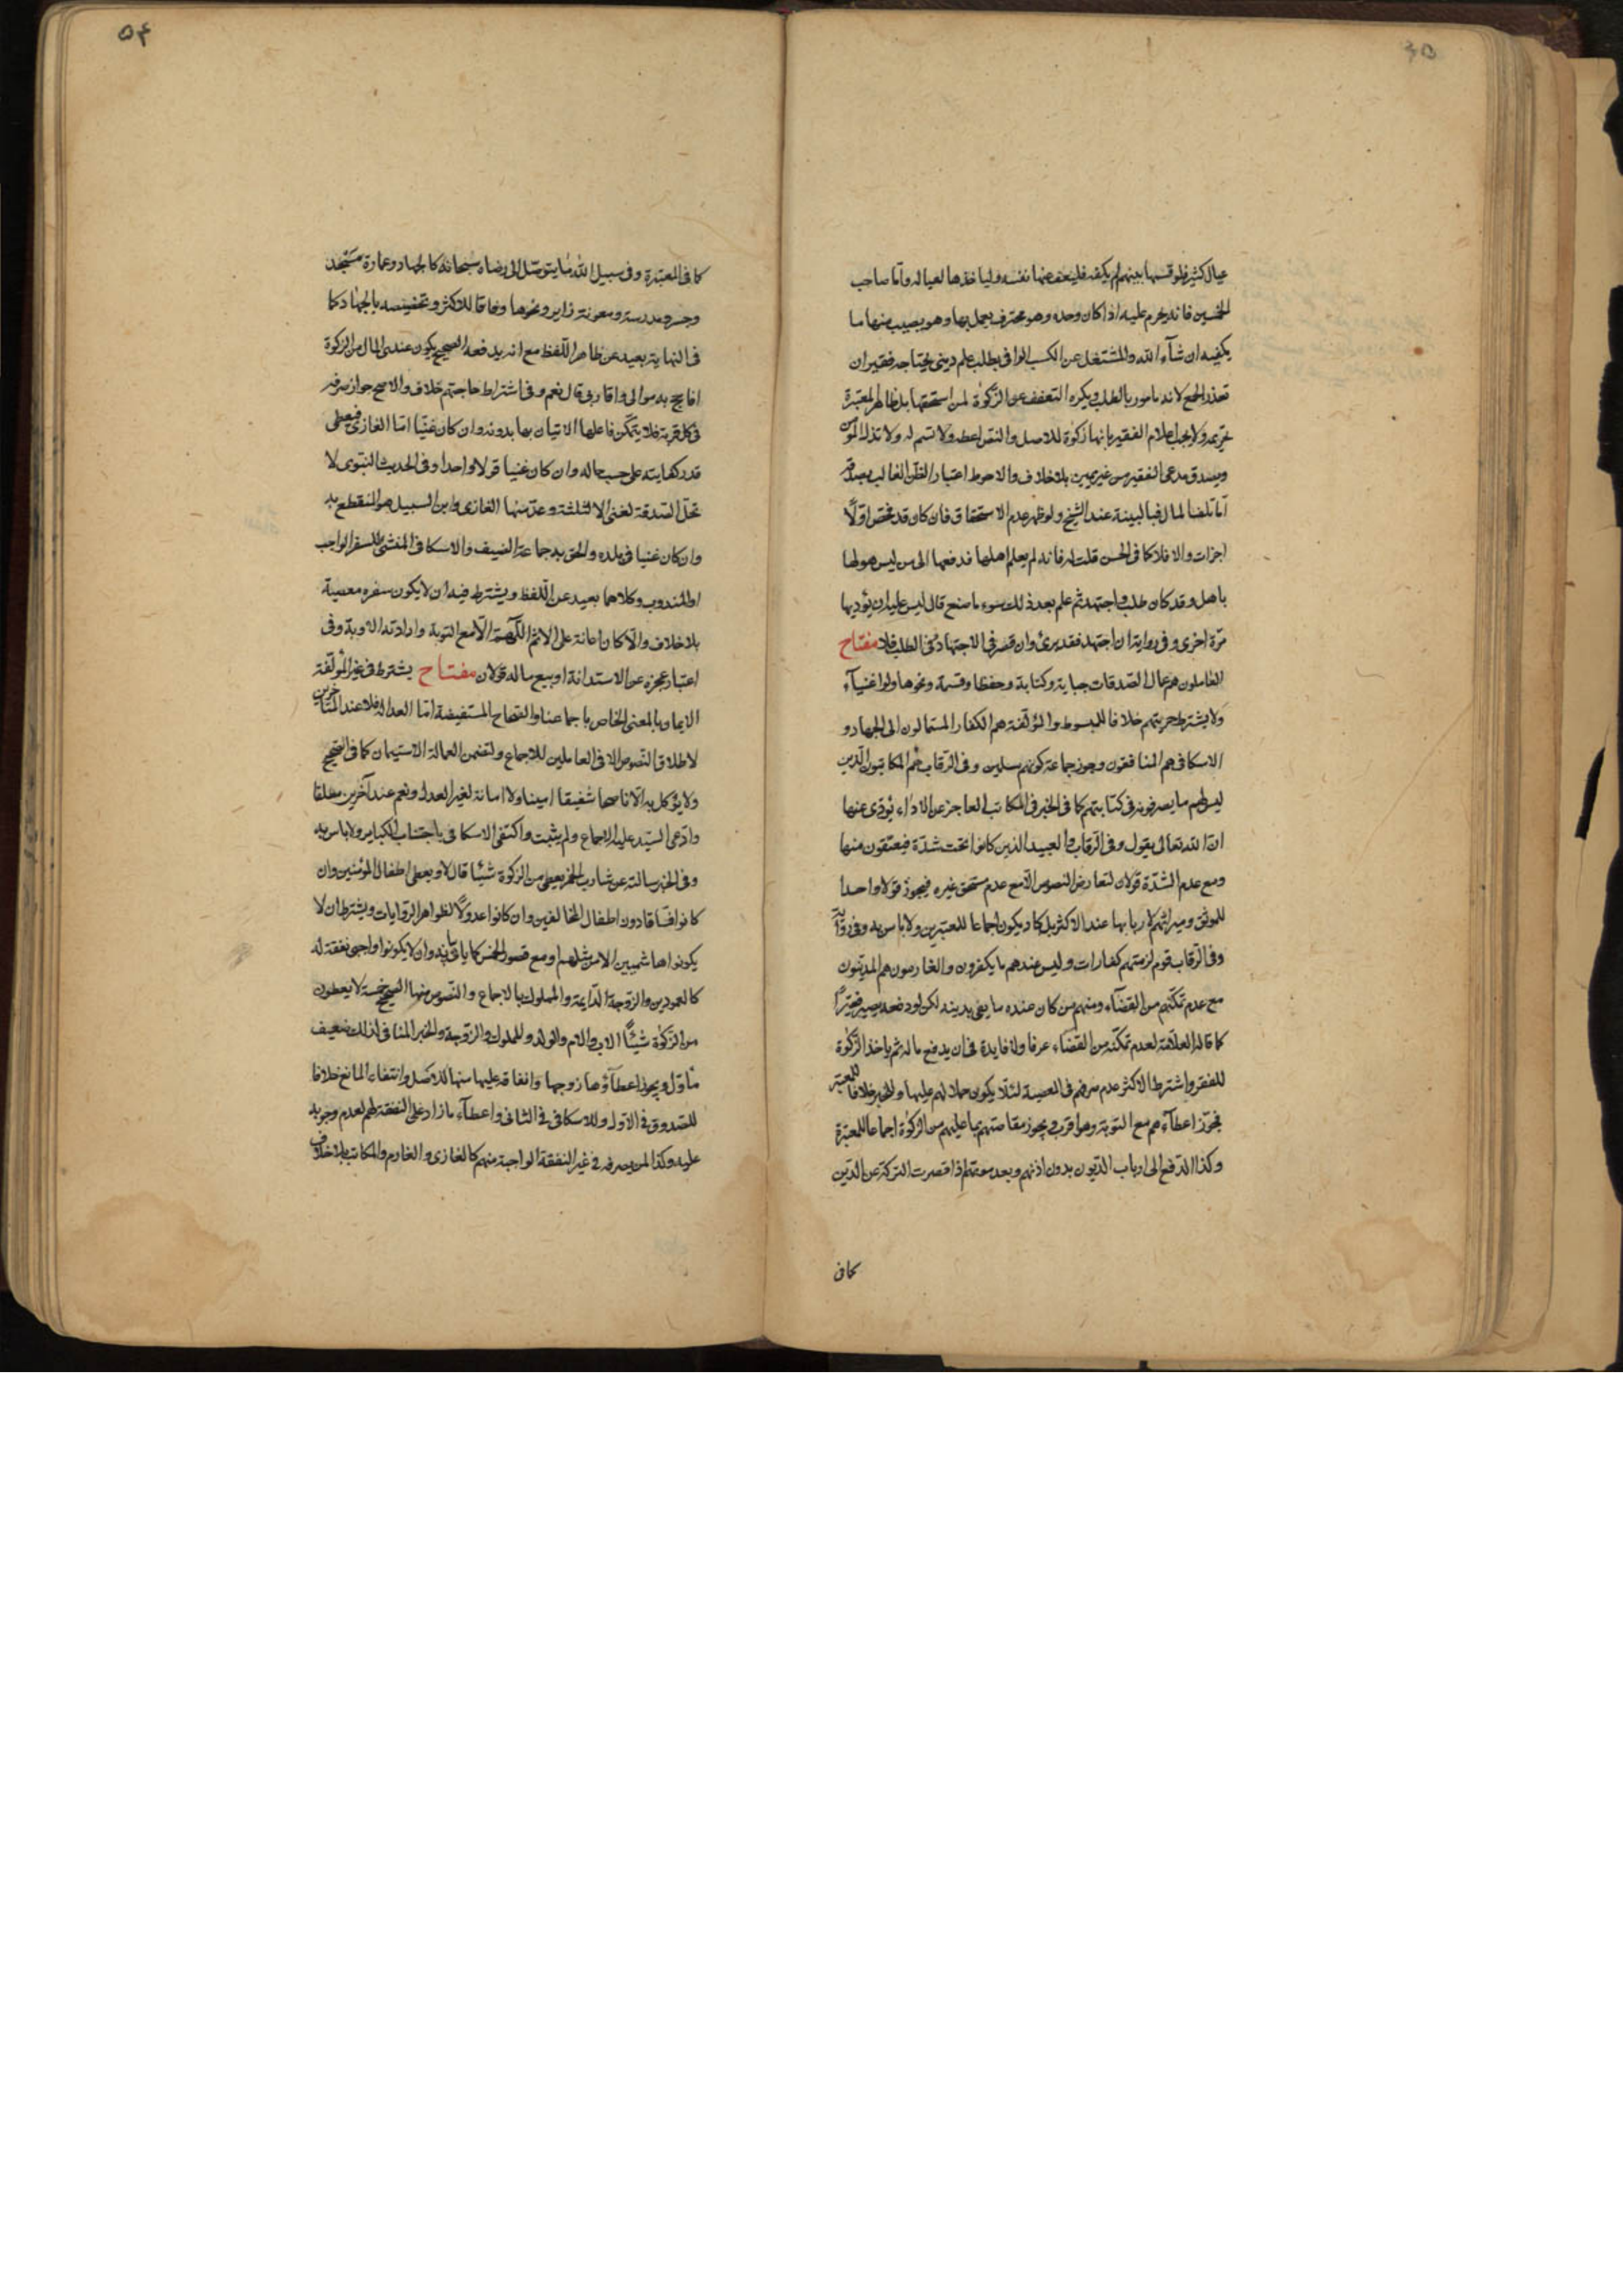 عيال كثير فلو قسمها بينهم لم يكفه فليعف عنها نفسه وليأخذها لعياله واما صاحب
الخمسين فانه يحرم عليه اذا كان وحده وهو محترف يعمل بها وهو يصيب منها ما
يكفيه ان شآء الله والمشتغل عن الكسب الوافى بطلب علم دينى يحتاجه فقير ان
تعذر الجمع لانه مامور بالطلب ويكره التعفف عن الزكوة لمن استحقها بل ظاهر المعتبرة
تحريمه ولا يجب اعلام الفقير بانها زكوة للاصل والنص اعطه ولا تسم له ولا تذل المؤمن
ويصدق مدعى الفقير من غير يمين بلا خلاف والاحوط اعتبار الظن الغالب بصدقه
اما تلف المال فبالبينة عند الشيخ ولو ظهر عدم الاستحقاق فان كان قد فحص اولا
اجزات والا فلا كما فى الحسن قلت له فانه لم يعلم اهلها فدفعها الى من ليس هو لها
باهل وقد كان طلب واجتهد ثم علم بعد ذلك سوء ما صنع قال ليس عليه ان يؤديها
مرة اخرى وفى رواية ان اجتهد فقد برئ وان قصر فى الاجتهاد فى الطلب فلا مفتاح
العاملون هم عمال الصدقات جباية وكتابة وحفظا وقسمة ونحوها ولو اغنيآء
ولا يشترط حريتهم خلافا للمبسوط والمؤلفة هم الكفار المستمالون الى الجهاد و
الاسكافى هم المنافقون وجوز جماعة كونهم مسلمين وفى الرقاب هم المكاتبون الذين
ليس لهم ما يصرفونه فى كتابتهم كما فى الخبر فى المكاتب العاجز عن الاداء يؤدى عنها
ان الله تعالى يقول وفى الرقاب والعبيد الذين كانوا تحت شدة فيعتقون منها
ومع عدم الشدة قولان لتعارض النصوص الا مع عدم مستحق غيره فيجوز قولا واحدا
للموثق وميراثهم لاربابها عند الاكثر بل كاد يكون اجماعا للمعتبرين ولا باس به وفى رواية
وفى الرقاب قوم لزمتهم كفارات وليس عندهم ما يكفرون والغارمون هم المدينون
مع عدم تمكنهم من القضآء ومنهم من كان عنده ما يفى بدينه لكن لو دفعه يصير فقيرا
كما قاله العلامة لعدم تمكنه من القضاء عرفا ولا فايدة فى ان يدفع ماله ثم ياخذ الزكوة
للفقر واشترط الاكثر عدم صرفهم فى المعصية لئلا يكون حملا لهم عليها وللخبر خلافا للمعتبر
فجوز اعطآءهم مع التوبة وهو اقرب ويجوز مقاصتهم بما عليهم من الزكوة اجماعا للمعتبرة
وكذا الدفع الى ارباب الديون بدون اذنهم وبعد موتهم اذا قصرت التركة عن الدين
كما فى
٥٤
كما فى المعتبرة وفى سبيل الله ما يتوصل الى رضاه سبحانه كالجهاد وعمارة مسجد
وجسر ومدرسة ومعونة زاير ونحوها وفاقا للاكثر وتخصيصه بالجهاد كما
فى النهاية بعيد عن ظاهر اللفظ مع انه يدفعه الصحيح يكون عندى المال من الزكوة
افاحج به موالى واقاربى قال نعم وفى اشتراط حاجتهم خلاف والاصح جواز صرفه
فى كل قربة فلا يتمكن فاعلها الاتيان بها بدونه وان كان غنيا اما الغازى فيعطى
قدر كفايته على حسب حاله وان كان غنيا قولا واحدا وفى الحديث النبوى لا
تحل الصدقة لغنى الا لثلثة وعد منها الغازى وابن السبيل هو المنقطع به
وان كان غنيا فى بلده والحق به جماعة الضيف والاسكافى المنشئ للسفر الواجب
او المندوب وكلاهما بعيد عن اللفظ ويشترط فيه ان لا يكون سفره معصية
بلا خلاف والا كان اعانة على الاثم اللهم الا مع التوبة وارادته الاوبة وفى
اعتبار عجزه عن الاستدانة او بيع ماله قولان مفتاح يشترط فى غير المؤلفة
الايمان بالمعنى الخاص باجماعنا والصحاح المستفيضة اما العدالة فلا عند المتاخرين
لاطلاق النصوص الا فى العاملين للاجماع ولتضمن العمالة الاستيمان كما فى الصحيح
ولا يؤكل به الا ناصحا شفيقا امينا ولا امانة لغير العدل ونعم عند آخرين مطلقا
وادعى السيد عليه الاجماع ولم يثبت واكتفى الاسكافى باجتناب الكباير ولا باس به
وفى الخبر سالته عن شارب الخمر يعطى من الزكوة شيئا قال لا ويعطى اطفال المؤمنين وان
كانوا فساقا دون اطفال المخالفين وان كانوا عدولا لظواهر الروايات ويشترط ان لا
يكونوا هاشميين الا من مثلهم او مع قصور الخمس كما ياتى بيانه وان لا يكونوا واجبى نفقة له
كالعمودين والزوجة الدايمة والمملوك بالاجماع والنصوص منها الصحيح خمسة لا يعطون
من الزكوة شيئا الاب والام والولد والمملوك والزوجة والخبر المنافى لذلك ضعيف
مأول ويجوز اعطآؤها زوجها وانفاقه عليها منها للاصل وانتفاء المانع خلافا
للصدوق فى الاول وللاسكافى فى الثانى واعطآء ما زاد على النفقة لهم لعدم وجوبه
عليه وكذا لمن يصرفه فى غير النفقة الواجبة منهم كالغازى والغارم والمكاتب بلا خلاف